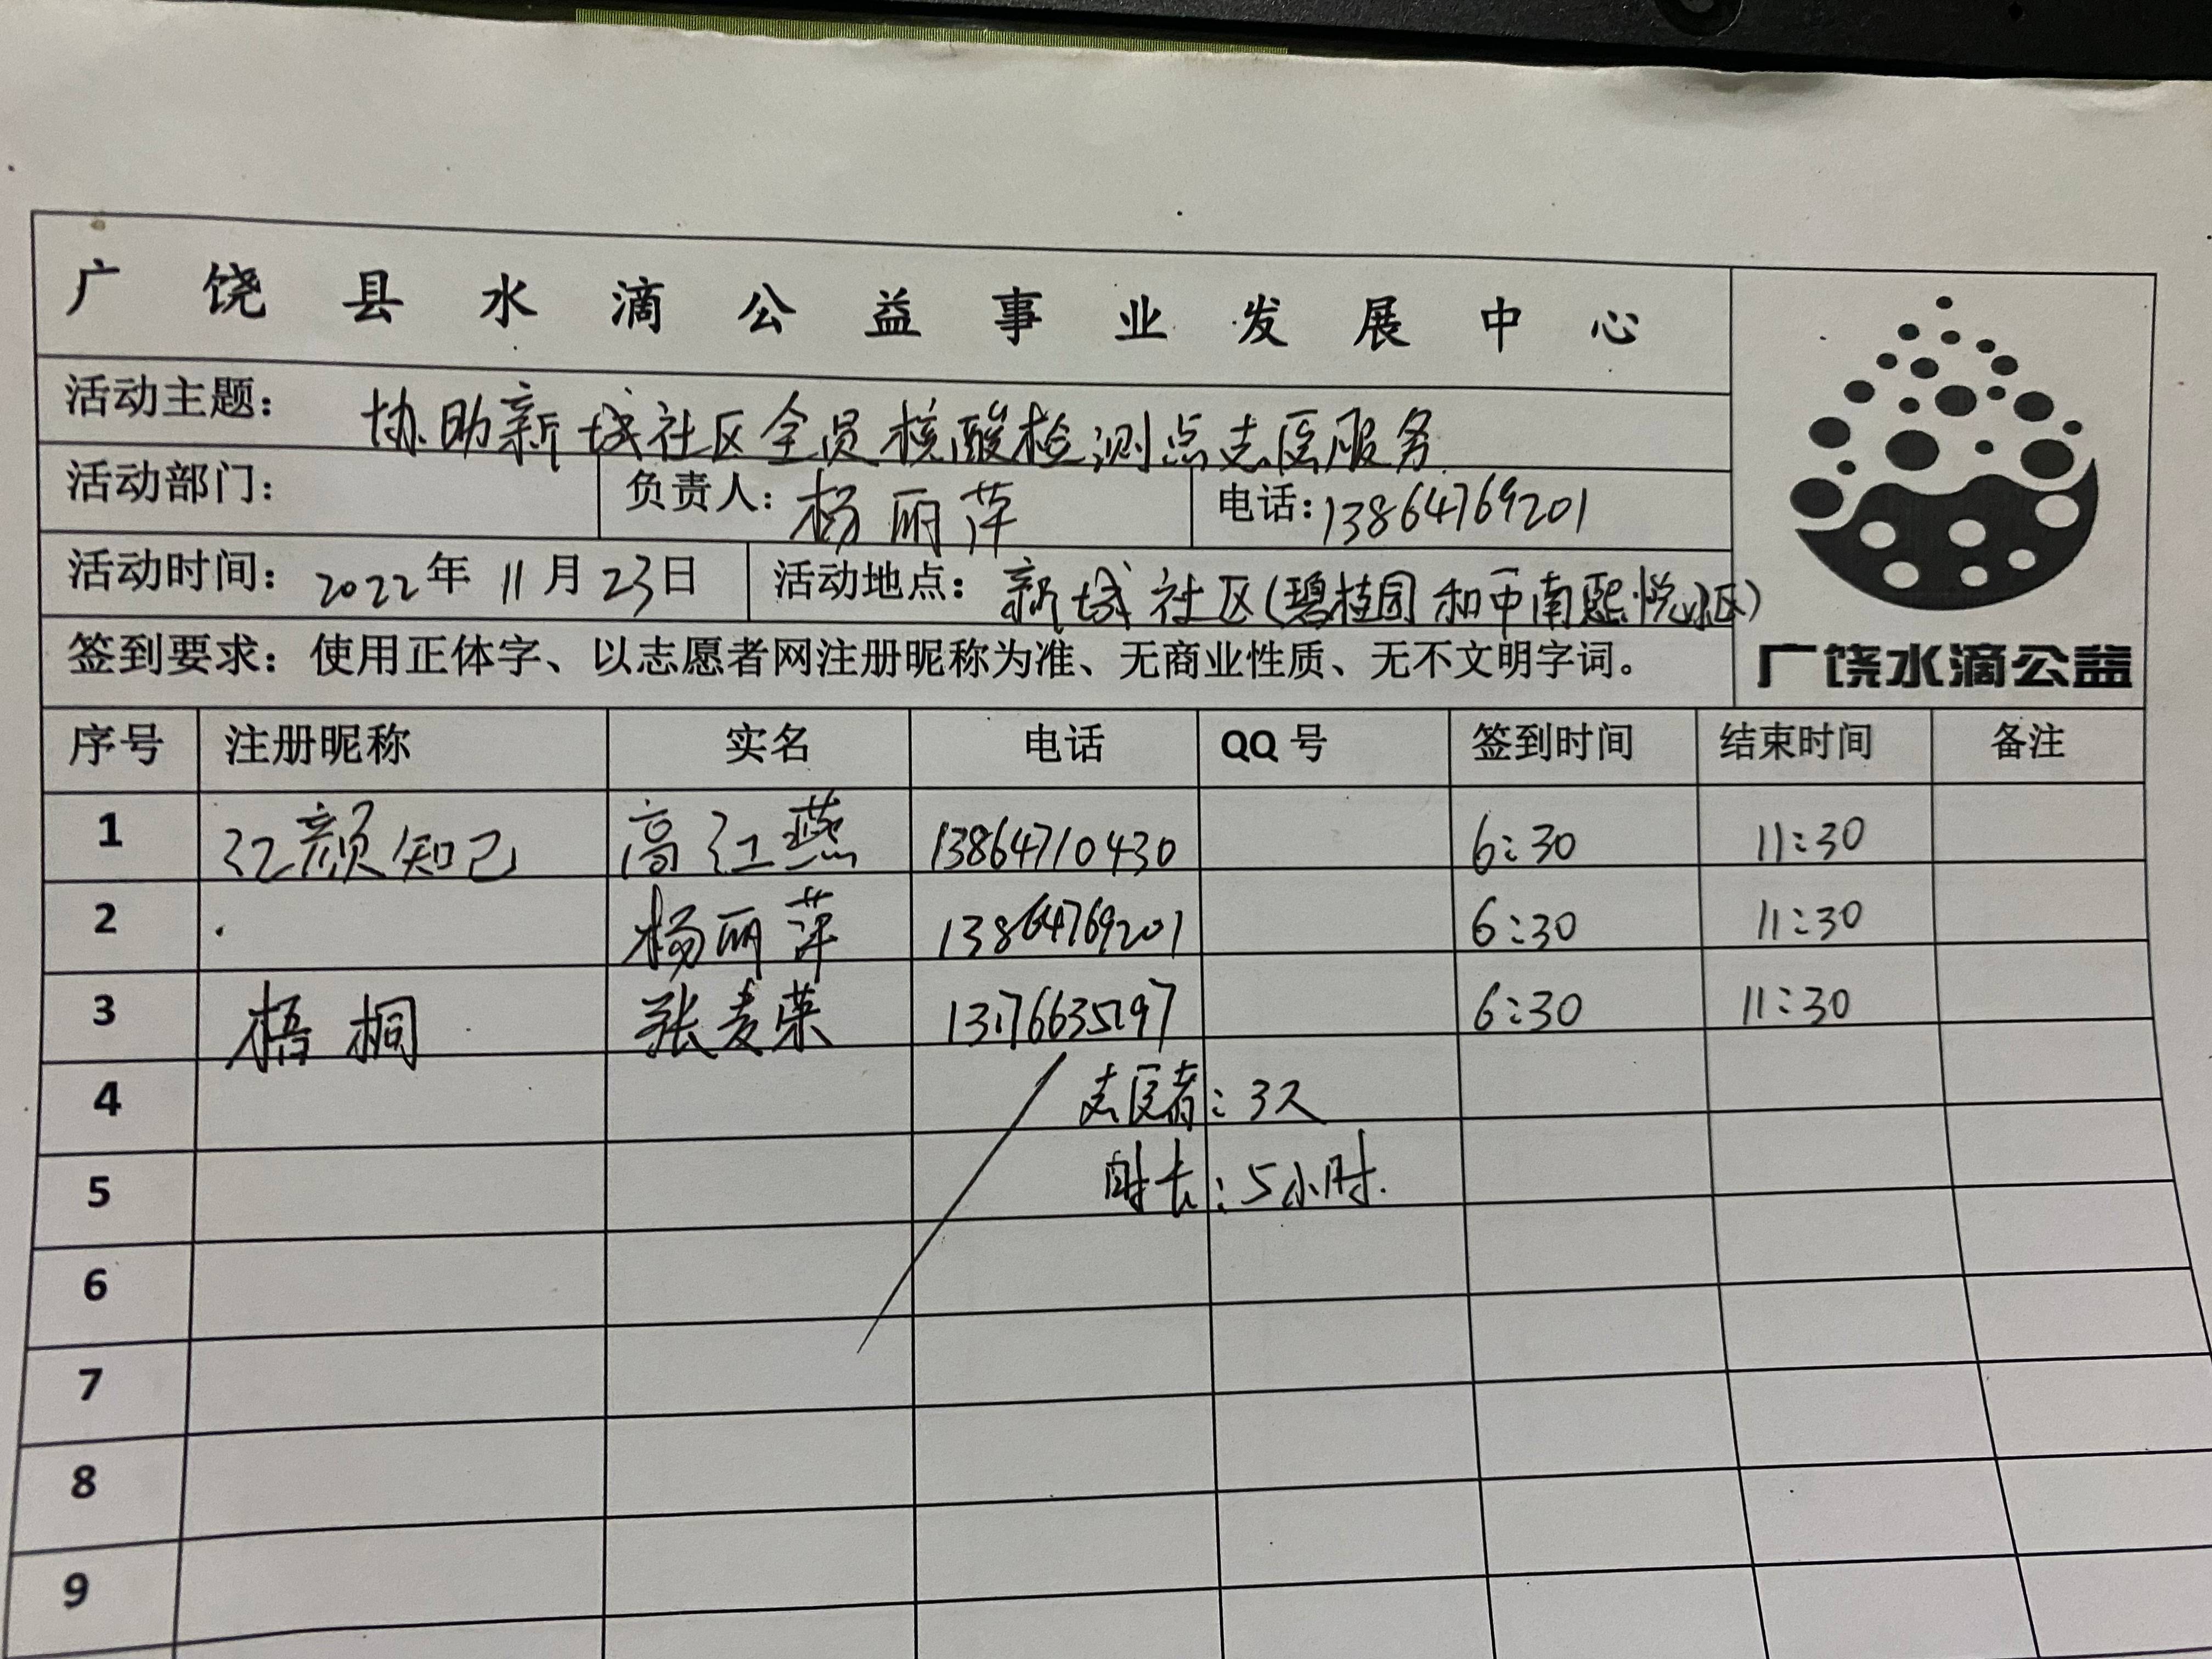 广饶县水滴公益事业发展中心
活动主题：协助新城社区全员核酸检测点志愿服务
活动部门： 负责人：杨丽萍 电话：13864769201
活动时间：2022年11月23日 活动地点：新城社区(碧桂园和中南熙悦小区)
签到要求：使用正体字、以志愿者网注册昵称为准、无商业性质、无不文明字词。
广饶水滴公益
序号 注册昵称 实名 电话 QQ号 签到时间 结束时间 备注
1 红颜知己 高红燕 13864710430 6:30 11:30
2 杨丽萍 13864769201 6:30 11:30
3 梧桐 张麦荣 13176635197 6:30 11:30
4 志愿者：3人
5 时长：5小时.
6
7
8
9